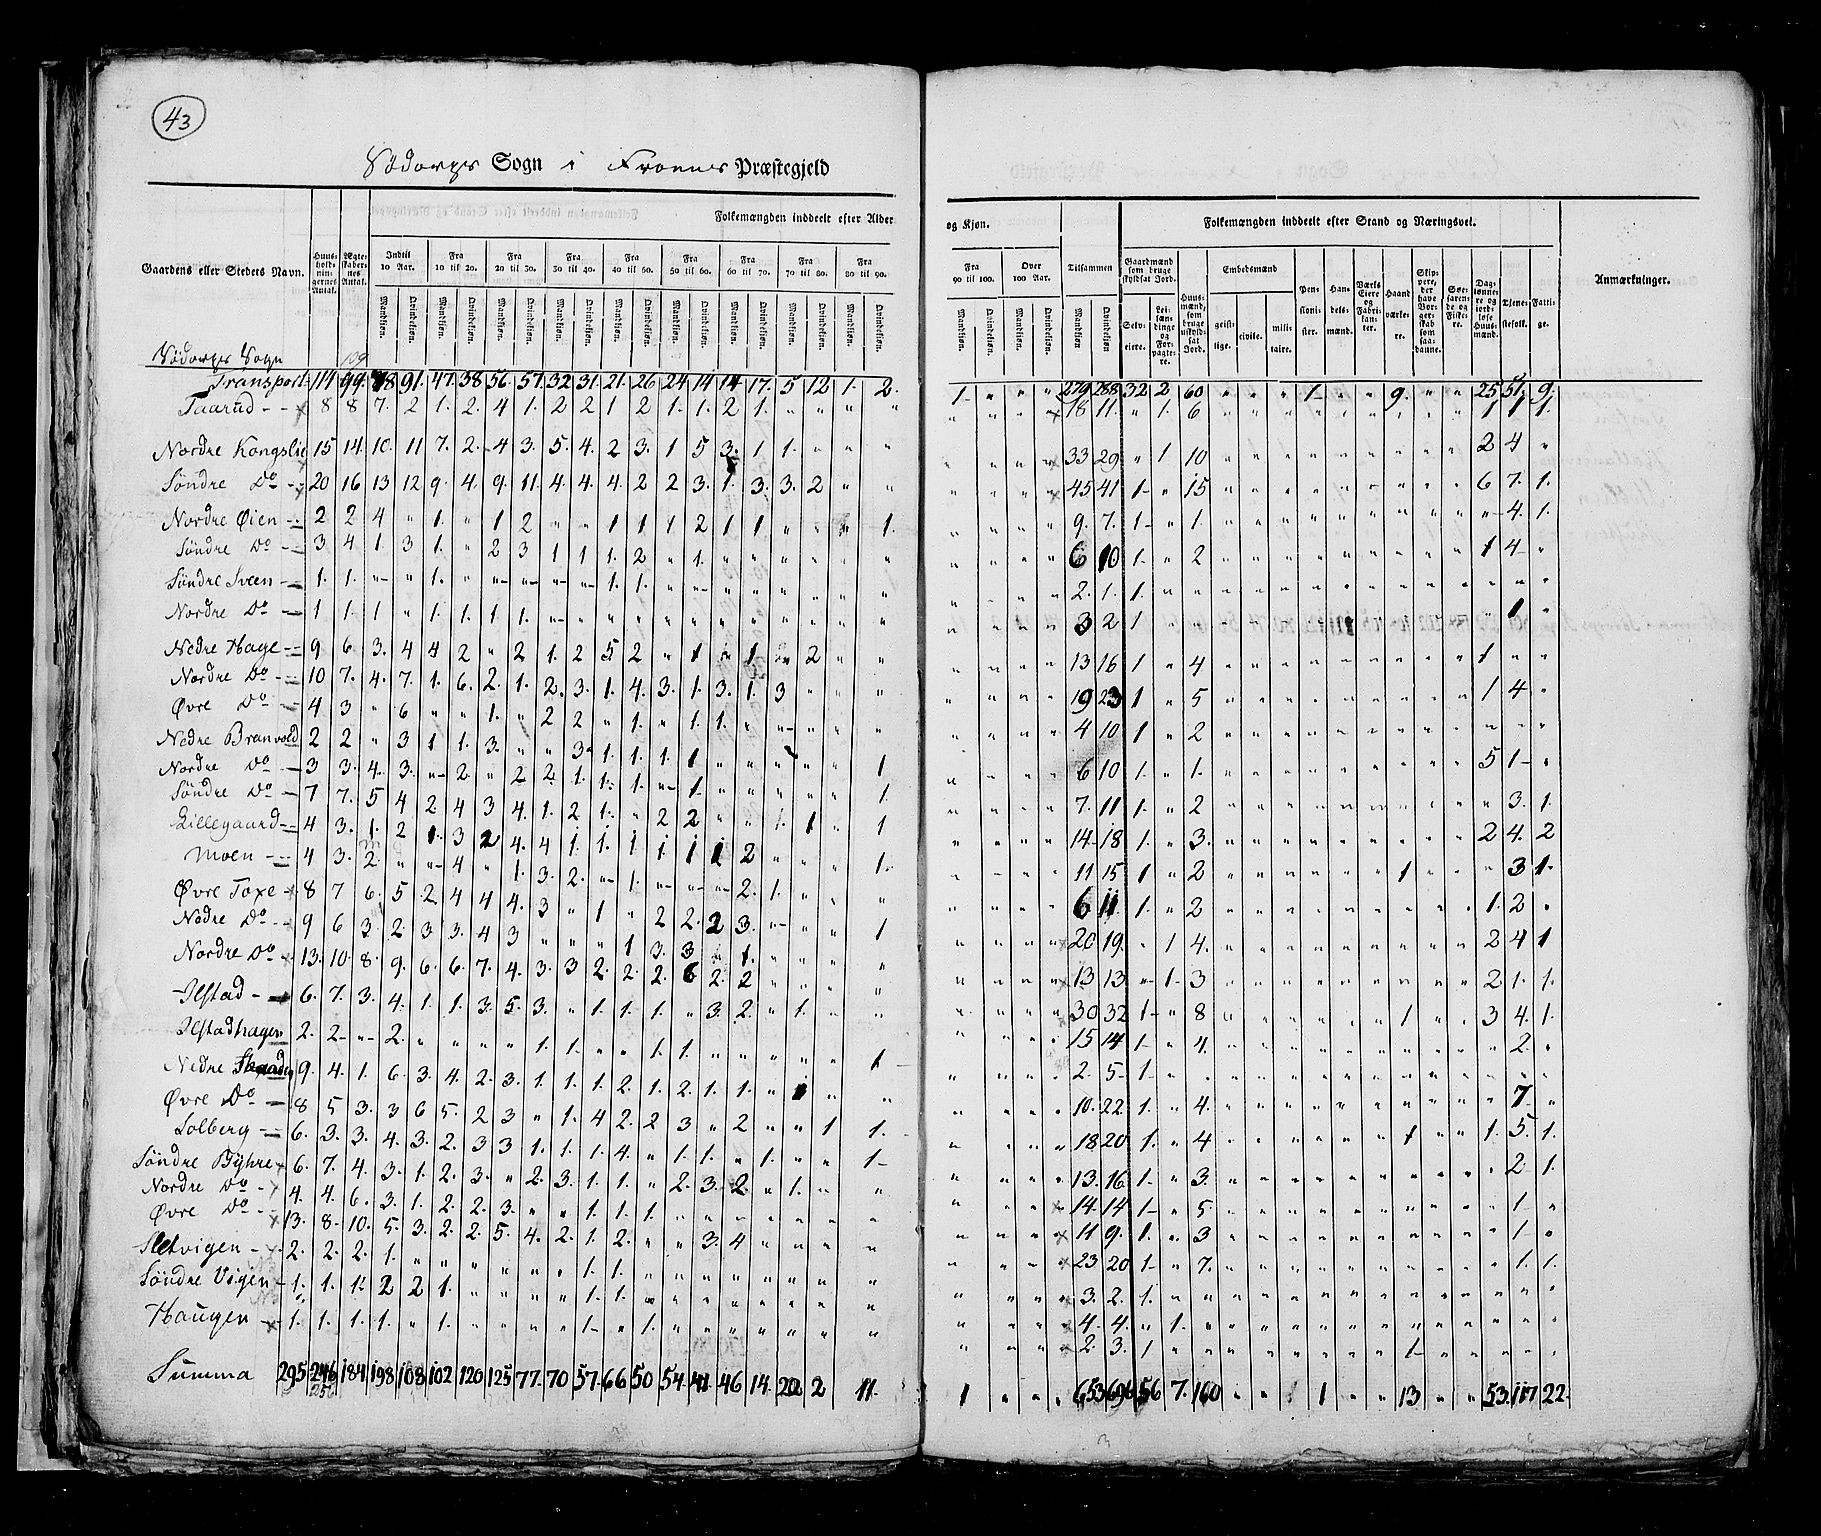 43
Södorps Sogn i Froens Præstegjeld
Folkemængden inddeelt efter Alder og Kjøn.
Folkemængden inddeelt efter Stand og Næringsvei.
Gaardens eller Stedets Navn.
Huusholdningernes Antal.
Ægteskabernes Antal.
Indtil 10 Aar.
Fra 10 til 20.
Fra 20 til 30.
Fra 30 til 40.
Fra 40 til 50.
Fra 50 til 60.
Fra 60 til 70.
Fra 70 til 80.
Fra 80 til 90.
Fra 90 til 100.
Over 100 Aar.
Tilsammen
Mandkjøn. Qvindekjøn.
Gaardmænd som bruge skyldsat Jord.
Selveiere.
Leilændinge og Forpagtere.
Huusmænd, som bruge uskyldsat Jord.
Embedsmænd
geistlige. civile. militaire.
Pensionister.
Handelsmænd.
Værks Eiere og Fabrikanter.
Haandværkere.
Skippere, der have Borgerskab som saadanne.
Søefarende og Fiskere.
Daglønnere og jordløse Huusmænd.
Tjenestefolk.
Fattige.
Anmærkninger.
Södorps Sogn 109
Transport 114 99 78 91. 47. 38 56 57 32 31. 21. 26 24 14 14 17. 5 12 1. 2. 1 " " " 279 288 32 2 60 " " " 1 " " 9. " " 25 51 9
Taarud 8 8 7. 2 1. 2. 4 1. 2 2 1 2 1. 1. 2 1. " " " " 18 11. " 1. 6 1 1 1.
Nordre Kongslie 15 14 10. 11 7. 2. 4 3. 5. 4. 2 3. 1 5 3. 1 1. " " " 33 29 " 1 10 2 4 "
Söndre Do 20 16 13 12 9. 4. 9. 11. 4. 4. 4. 2 2 3. 1. 3. 3. 2 " " 45 41 1 " 15 6 7. 1.
Nordre Øien 2 2 4 " 1. " 1 2 " " 1 1 1 2 1 1 " " " 1. 9. 7. 1 " 1. " 4. 1.
Söndre Do 3 4 1 3 1. " 2 3 1 1 1. 2 " 1. 6 10 1. " 2 1 4 "
Söndre Sveen 1. 1. " " 1. " " " " " 1. 1. 2. 1. 1.
Nordre Do 1 1. 1 " 1. 1. 1 1. 3 2 1 1 "
Nedre Hage 9 6 3. 4 4 2 " 2 1. 2 5 2 " 1 " 1 " 2 " " 13 16 1 " 4 1 " "
Nordre Do 10 7. 4. 7. 1. 6. 2. 1. 2. 3. 1. 4. 3. 1. 3. 1. 3 " " " 19 23 1 " 5 1 4 "
Øvre Do 4 3 " 6 " " 1. " 2 2 " 1. " 1. 1. 4 10 1 " 2
Nedre Branvold 2 2 " 3 1 1. 3. " " 3 1. 1. 1. 1 1 6 10 1. " 1. 5 1 "
Nordre Do 3 3. 4. 3. " 2. " 2 2. 1. 1. 1. " 1. 1. 7. 11 1. " 2 3. 1.
Söndre Do 7 7. 5 4 2. 4 3 4. 1. 2 1. " 2 2 " " 1. 1 " 1 14 18 1. " 3. 2 4. 2
Lillegaard 4 3. 1. 2 1. 3 2 4. 4 1. 1. 1 1. 1 1 2 " " " 1. 11 15 1 " 2 1 " 3 1.
Moen 4 3. 2. " " 4 " 1. 3. 2. " 1. " " " 2. 1. 6 11 1. " 2 1. 2 "
Øvre Toxe 8 7 6. 5 2 4 4 4. 3 " 1 " 2 2. 2 3. " " " 1 20 19. " 1 4. 2 4 1
Nedre Do 9 6 3. 2. 3 3. 4 3 " " " 1 3. 3 " 1. 13 13 " 1. 3 2 1. 1.
Nordre Do 13. 10. 8. 9. 6. 6. 7. 4. 3. 3 2. 2. 2. 6 2. 2 30 32 1 " 8 1 3 4. 1.
Ilstad 6. 7. 3. 4. 1. 1. 3. 5. 3. " 1. 1. 1. " 3. 2. " 1. " " 15 14 1. " 4. 2. "
Ilstadhagen 2. 2 " 2. " " " " 1. 1. " " 1. 1. 1 2. 5. 1.
Nedre 9. 4. 1. 6. 3. 4. 2. 3. 1. 1. 1. 2. 1. 2. 1. 1. " 1 " " 10. 22. 1. " 4. 7 "
Øvre Do 8 5 3. 3 6 5. 2 3 " 1. 4 2. 2 3 " 2 " " 1 1. 18 20 1. " 4 1 1. 5. 1.
Solberg 6. 3. 3. 4. 3. 2. 3 3 1. 1. 1. 4. " 1. 1. " 1. " " 1 13. 16. 1. " 3. 2 1.
Söndre Byhre 6. 7. 4. 3. 1. 2. 3. " 2. 3. 1. 1. " 2. 3. 2. " 1. " " 14. 14 1 " 5. 1 "
Nordre Do 4. 4. 6. 3. 1. 2. 2. 3. " " 1. 1. 1. 11 9. 1. " 3 1 "
Øvre Do 13. 8. 10. 5. 3. 2. 2. 5. 4. 2. 1. 2. " " 3. 4 " " " " 23 20 1 " 7. 1. 1.
Sletvigen 2. 2. 2. 1. 1. 1. 3. 2. 1.
Söndre Vigen 1. 1. 1. 2 2 1. 1. 1. 4. 4. " 1.
Haugen 1. 1. 1. 1. " 1. " " " " 1 " 1. 2. 3. 1 1
Summa 295 246 184 198 108 102 120 125 77. 70 57. 66 50 54. 41 46 14. 20 2 11. 1 " " " 653 696 56 7. 160 " " 1 " " 13 " " 53. 117 22.